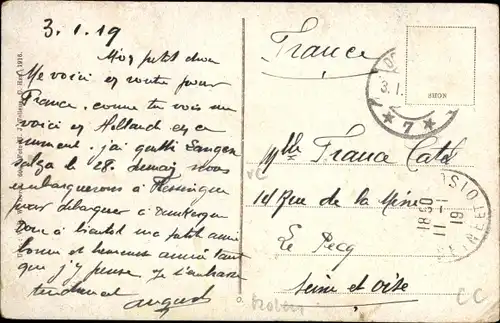 3.1.19
Mon petit chou
Me voici en route pour
France, comme tu vois me
voici en Holland en ce
moment. j'ai quitté Langen
salza le 28. demain nous
embarquerons à Flessingue
pour débarquer à Dunkerque
donc à bientôt ma petite amie
bonne et heureuse année tant
que j'y pense. je t'embrasse
tendrement
August
France
3.1.
* 7 *
Mlle France
14 Rue de la Mine
Le Pecq
Seine et Oise
OISE
1830
11-1
19
CC